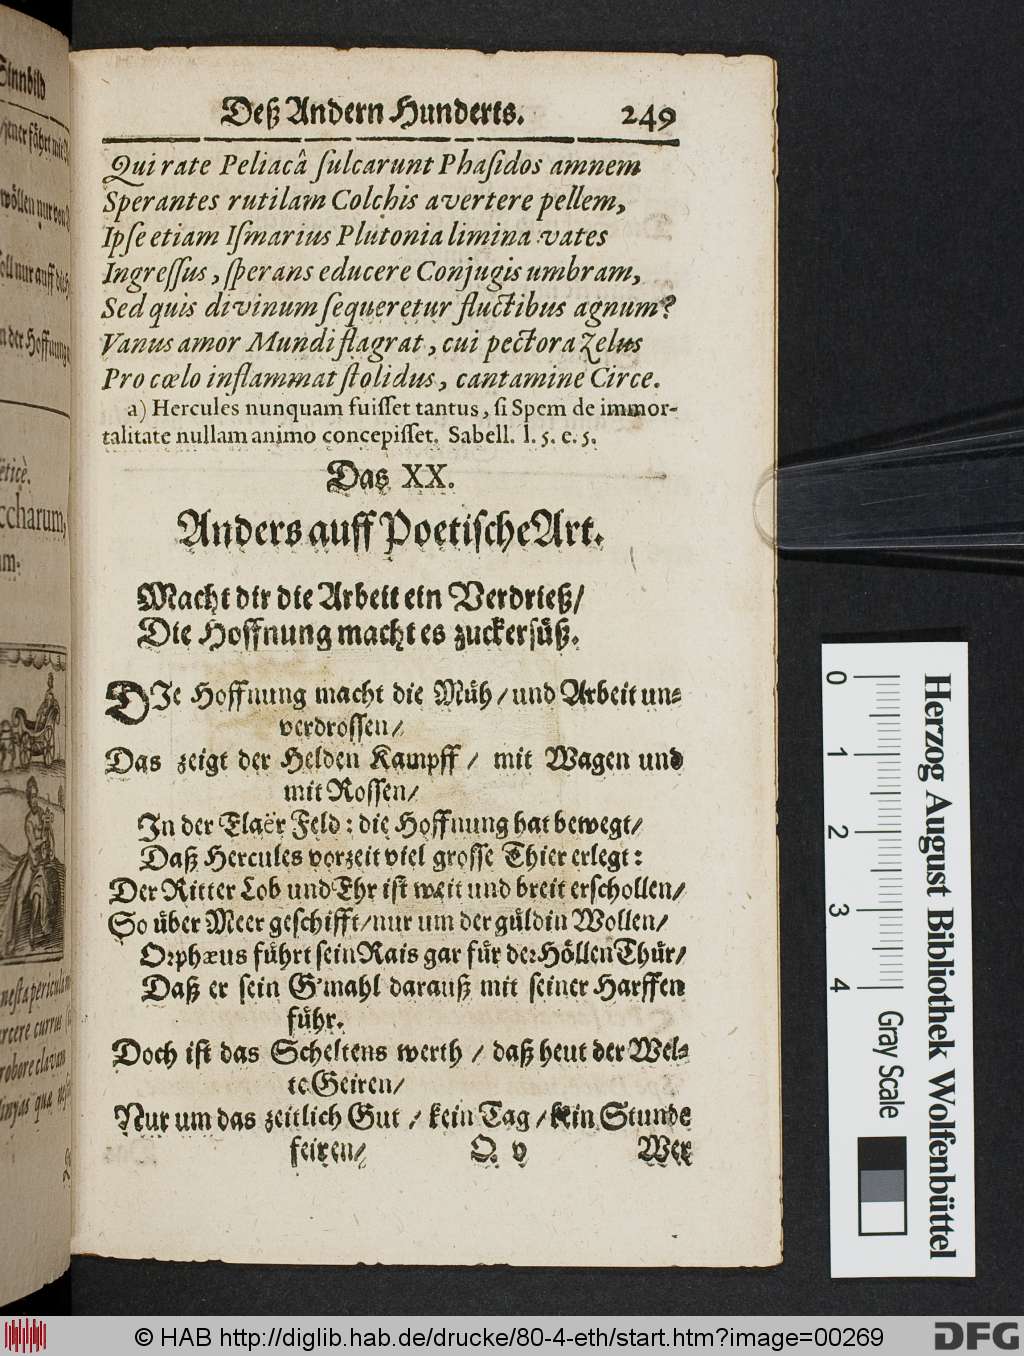 Deß Andern Hunderts. 249
Qui rate Peliacâ ſulcarunt Phaſidos amnem
Sperantes rutilam Colchis avertere pellem,
Ipſe etiam Iſmarius Plutonia limina vates
Ingreſſus, ſperans educere Conjugis umbram,
Sed quis divinum ſequeretur fluctibus agnum?
Vanus amor Mundi flagrat, cui pectora Zelus
Pro cœlo inflammat ſtolidus, cantamine Circe.
a) Hercules nunquam fuiſſet tantus, ſi Spem de immor-
talitate nullam animo concepiſſet. Sabell. l. 5. c. 5.
Das XX.
Anders auff Poetiſche Art.
Macht dir die Arbeit ein Verdrieß/
Die Hoffnung macht es zuckerſüß.
DIe Hoffnung macht die Müh/ und Arbeit un-
verdroſſen/
Das zeigt der Helden Kampff/ mit Wagen und
mit Roſſen/
In der Elaër Feld: die Hoffnung hat bewegt/
Daß Hercules vorzeit viel groſſe Thier erlegt:
Der Ritter Lob und Ehr iſt weit und breit erſchollen/
So über Meer geſchifft/ nur um der güldin Wollen/
Orphæus führt ſein Rais gar für der Höllen Thür/
Daß er ſein G'mahl darauß mit ſeiner Harffen
führ.
Doch iſt das Scheltens werth/ daß heut der Wel-
te Geiren/
Nur um das zeitlich Gut/ kein Tag/ kein Stunde
feiren/ Q v Wer
Sinnbild
wöllen nur von
ſoll nur auff
in der Hoffnung
ccharum,
um.
0 1 2 3 4
Herzog August Bibliothek Wolfenbüttel
Gray Scale
© HAB http://diglib.hab.de/drucke/80-4-eth/start.htm?image=00269
DFG